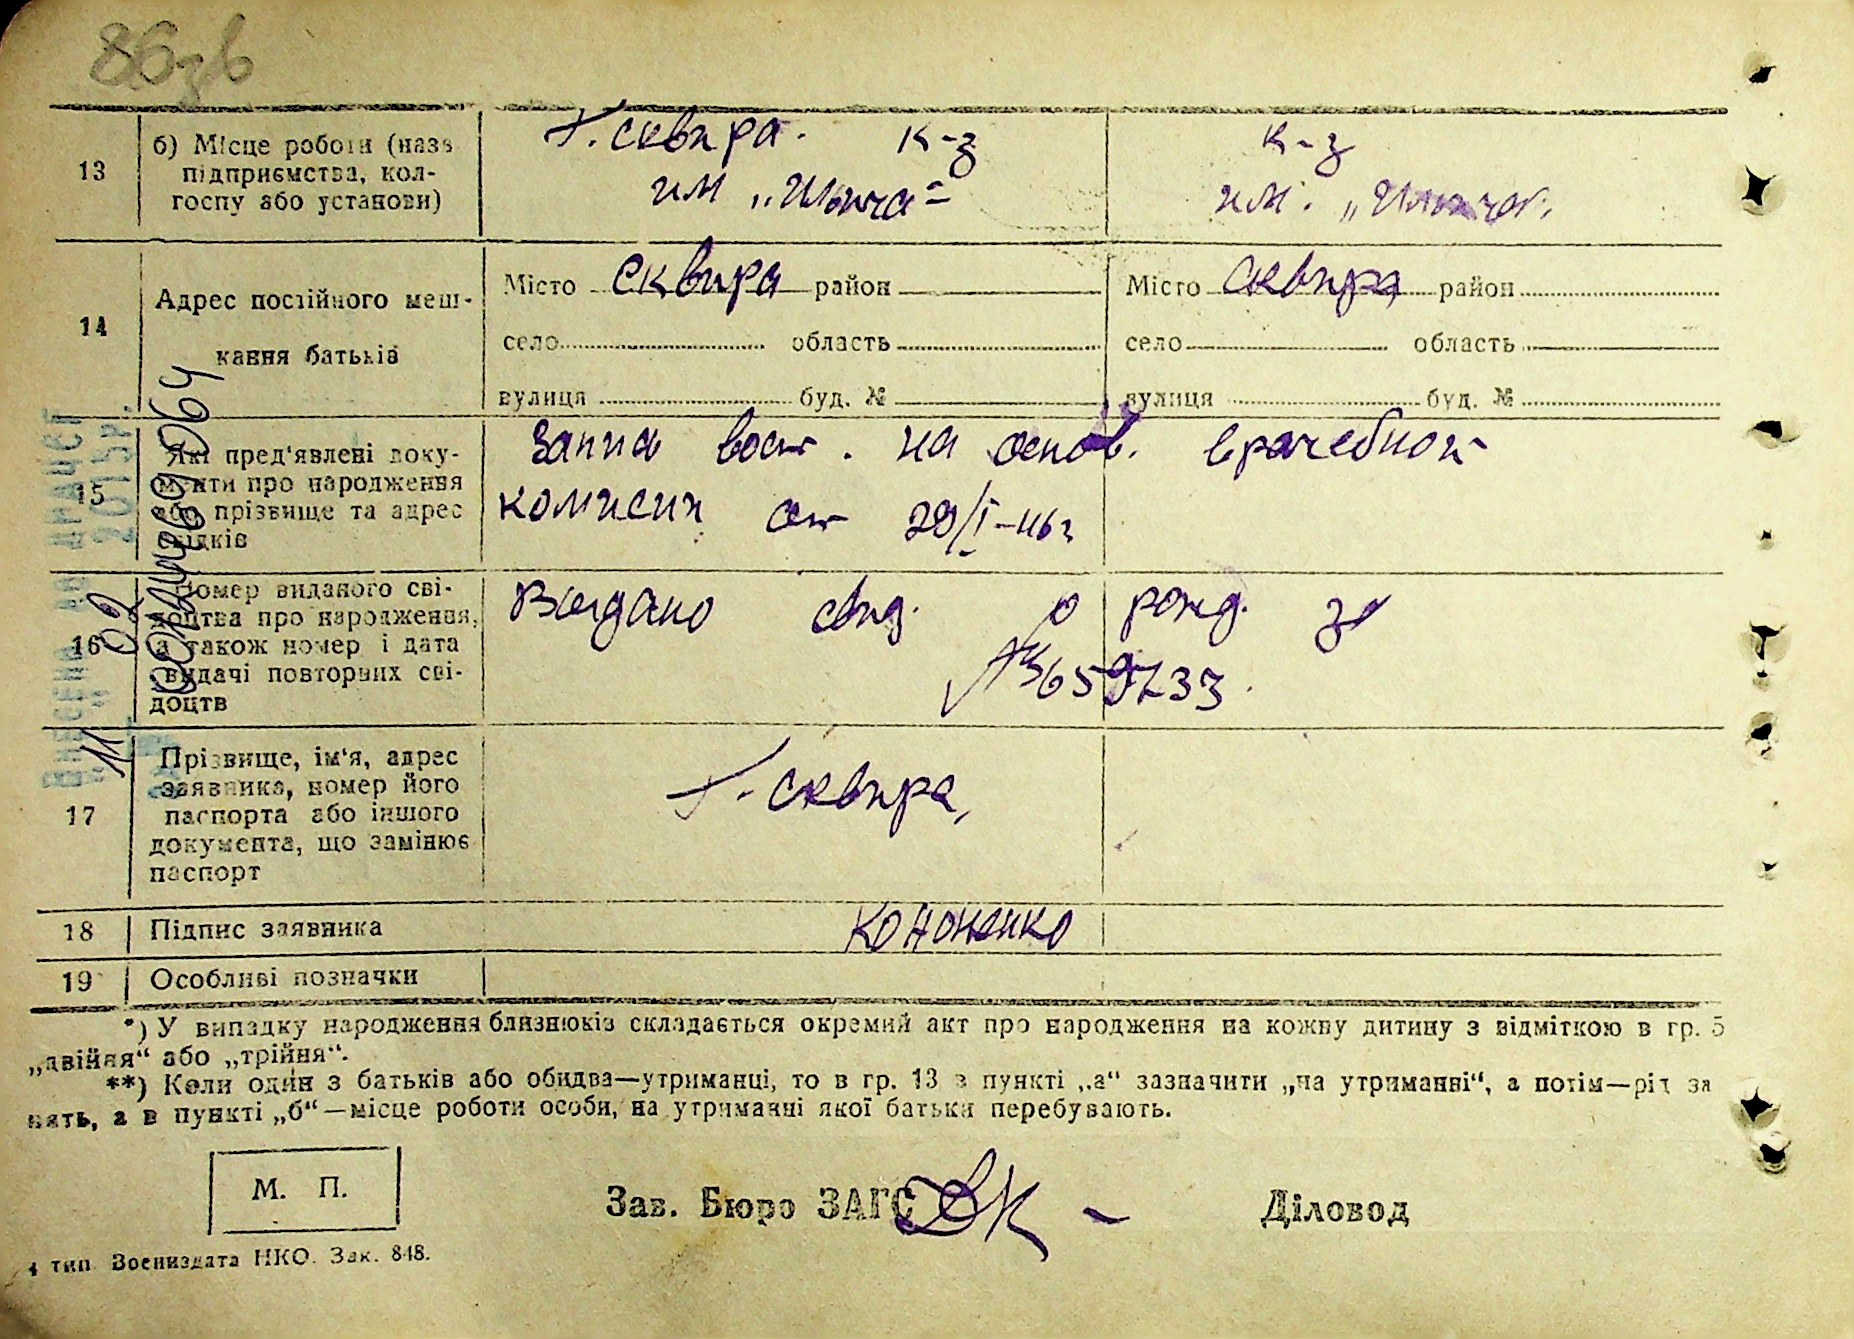 86зв
13
б) Місце роботи (назв
підприємства, кол-
госпу або установи)
г. Сквира. к-з
им „Ильича"
к-з
им. „Ильича".
14
Адрес постійного меш-
кання батьків
Місто Сквира район
село область
вулиця буд. №
Місто Сквира район
село область
вулиця буд. №
15
Які пред'явлені доку-
менти про народження
або прізвище та адрес
свідків
Запись вост. на основ. врачебной
комисии от 29/I-46г
16
Номер виданого сві-
доцтва про народження,
а також номер і дата
видачі повторних сві-
доцтв
Выдано свид. о рожд. за
№ 659733.
17
Прізвище, ім'я, адрес
заявника, номер його
паспорта або іншого
документа, що замінює
паспорт
г. Сквира,
18
Підпис заявника
Кононенко
19
Особливі позначки
*) У випадку народження близнюків складається окремий акт про народження на кожну дитину з відміткою в гр. 5
„двійня“ або „трійня“.
**) Коли один з батьків або обидва—утриманці, то в гр. 13 в пункті „а“ зазначити „на утриманні“, а потім—рід за
нять, а в пункті „б“—місце роботи особи, на утриманні якої батьки перебувають.
М. П.
Зав. Бюро ЗАГС
Діловод
4 тип. Воениздата НКО. Зак. 848.